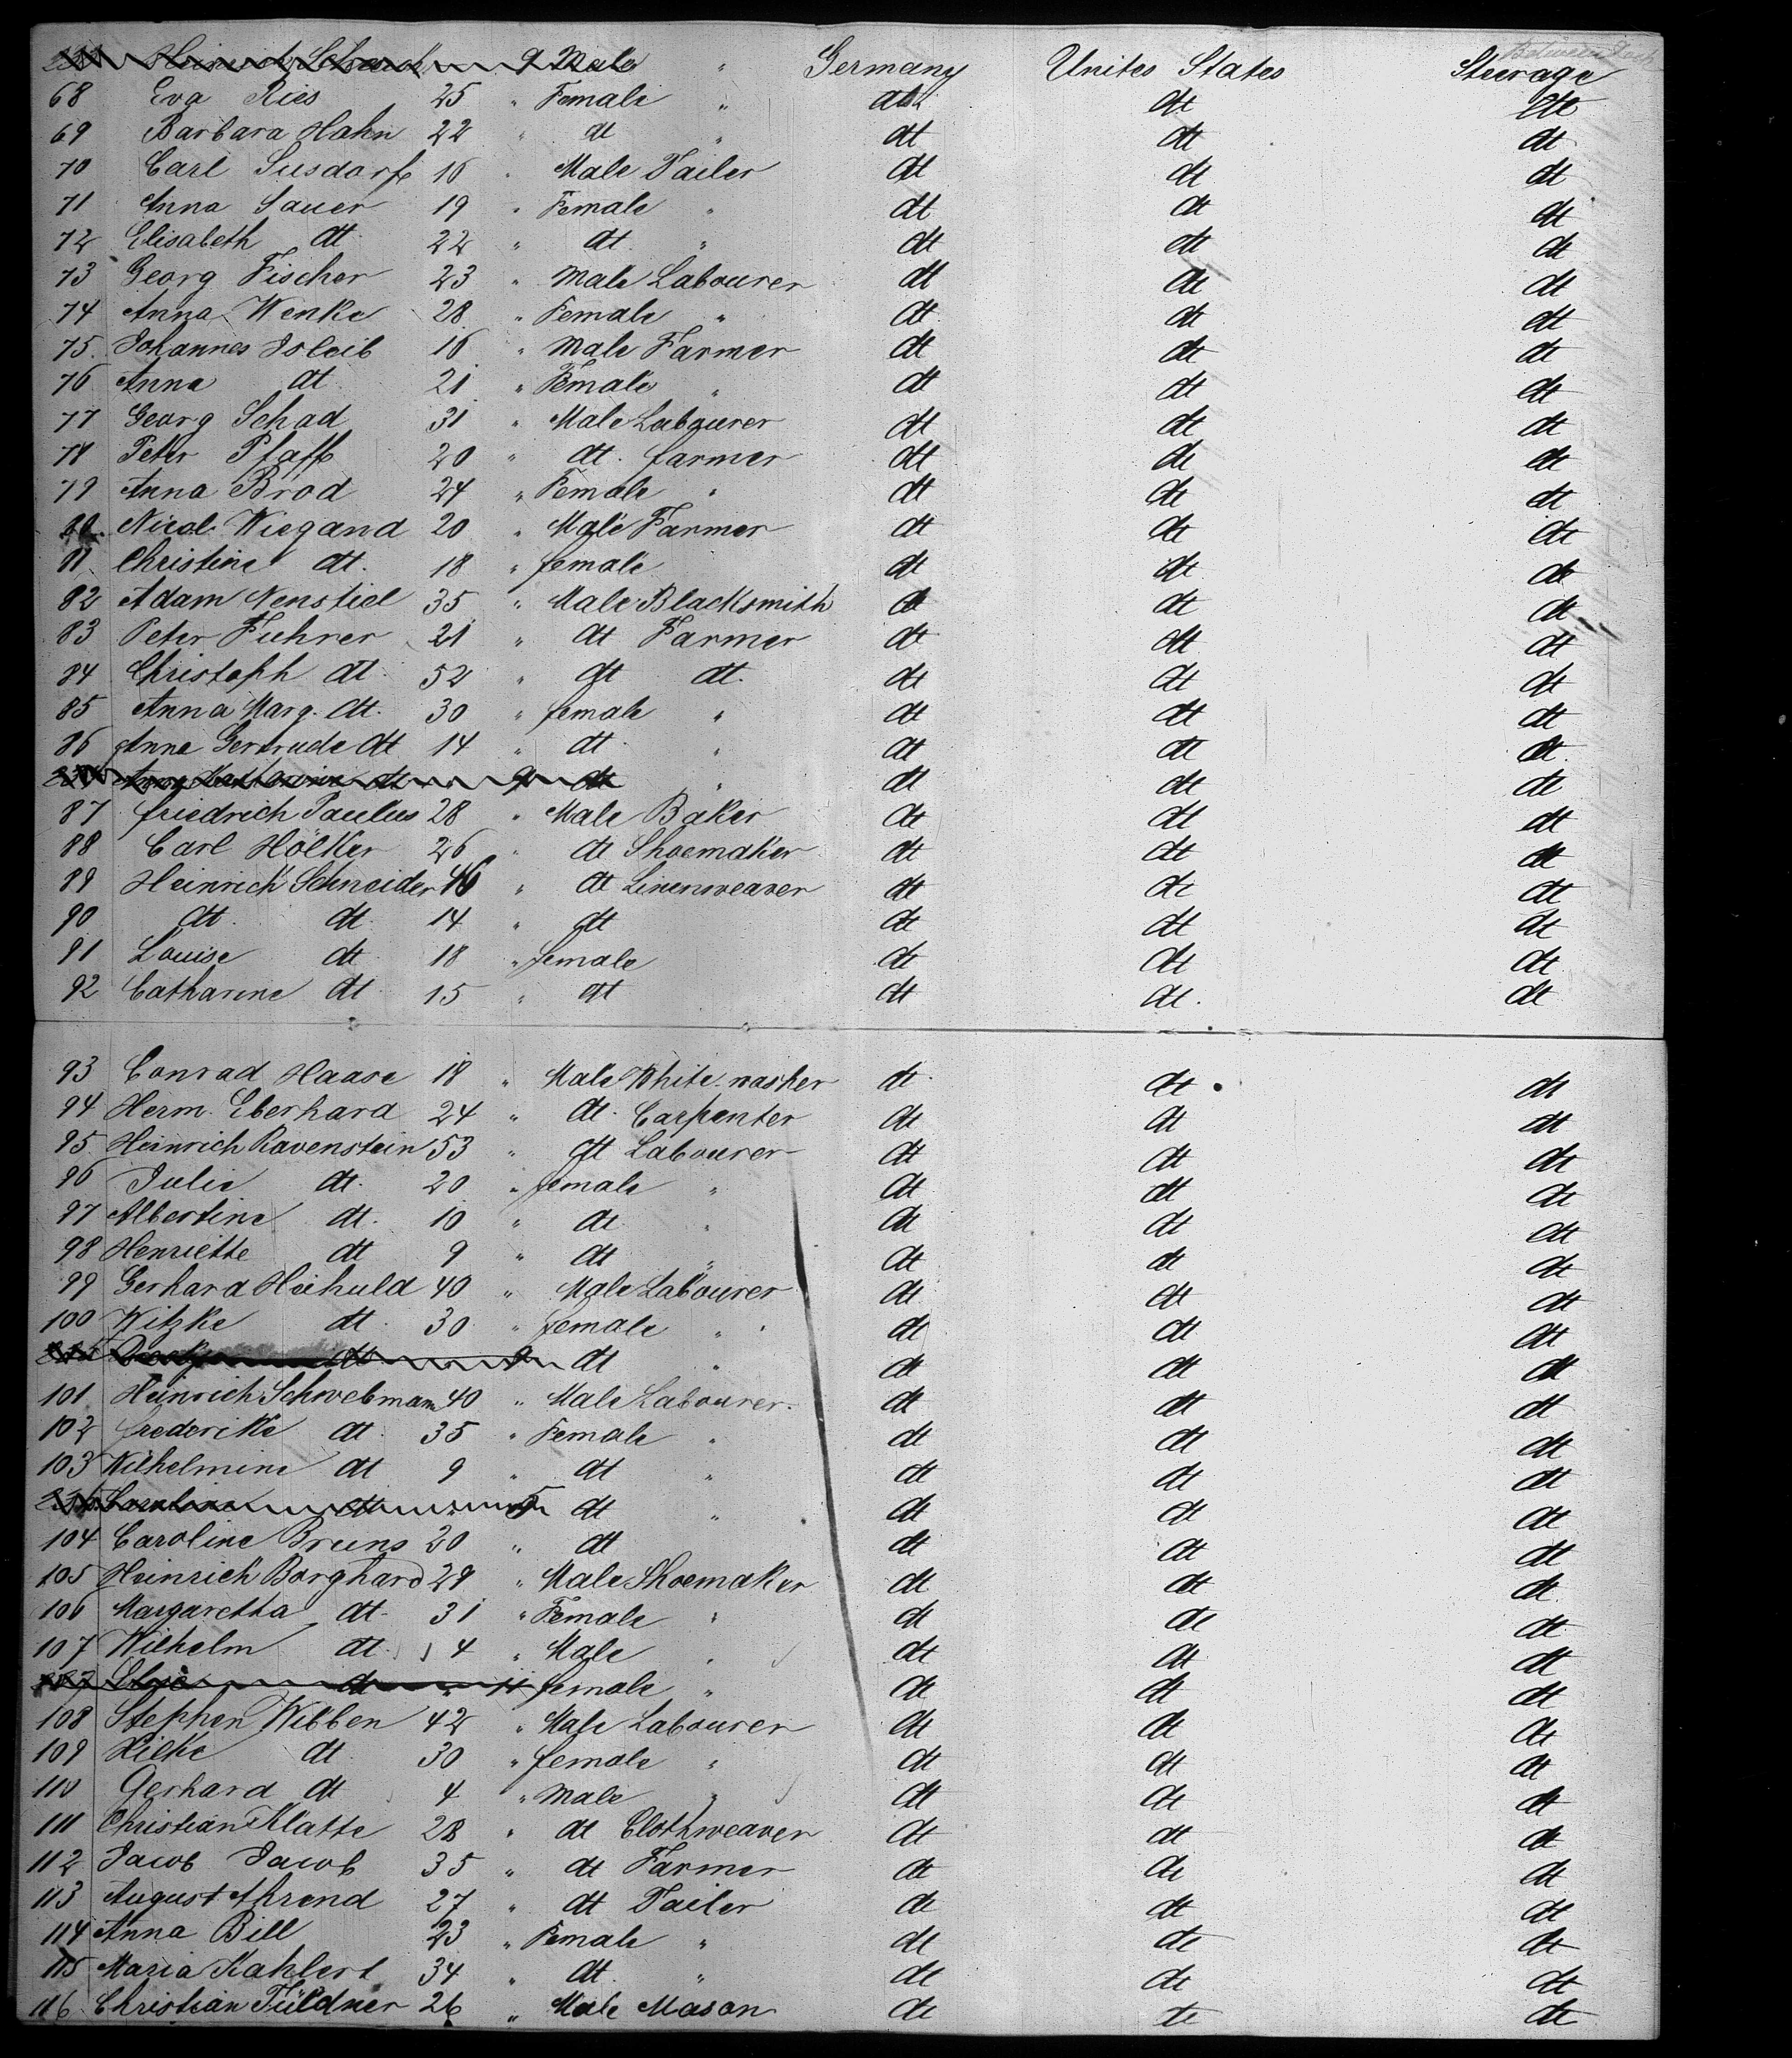 Heinrich 9 Male " Germany Unites States Steerage
68 Eva Ries 25 " Female " dt dt dt
69 Barbara Hahn 22 " dt " dt dt dt
70 Carl Susdorf 16 " Male Tailer dt dt dt
71 Anna Sauer 19 " Female " dt dt dt
72 Elisabeth dt 22 " dt " dt dt dt
73 Georg Fischer 23 " Male Labourer dt dt dt
74 Anna Wenke 28 " Female " dt dt dt
75. Johannes Isleib 16 " Male Farmer dt dt dt
76 Anna dt 21 " Female " dt dt dt
77 Georg Schad 31 " Male Labourer dt dt dt
78 Peter Pfaff 20 " dt. farmer dt dt dt
79 Anna Brod 24 " Female " dt dt dt
80. Nicol. Wiegand 20 " Male Farmer dt dt dt
81 Christine dt. 18 " female dt dt dt
82 Adam Nenstiel 35 " Male Blacksmith dt dt dt
83 Peter Fuhrer 21 " dt Farmer dt dt dt
84 Christoph dt. 52 " dt dt. dt dt dt
85 Anna Marg. dt. 30 " female " dt dt dt
86 Anna Gertrude dt 14 " dt " dt dt dt
Anna Katharina dt 9 dt " dt dt dt
87 friedrich Paulus 28 " Male Baker dt dt dt
88 Carl Hölker 26 " dt Shoemaker dt dt dt
89 Heinrich Schneider 46 " dt Linenweaver dt dt dt
90 dt. dt. 14 " dt dt dt dt
91 Louise dt 18 " female dt dt dt
92 Catharine dt 15 " dt dt dt. dt
93 Conrad Haase 18 " Male White-washer dt dt dt
94 Herm. Eberhard 24 " dt. Carpenter dt dt dt
95. Heinrich Ravenstein 53 " dt Labourer dt dt dt
96 Julie dt. 20 " female " dt dt dt
97 Albertine dt. 10 " dt " dt dt dt
98 Henriette dt 9 " dt " dt dt dt
99 Gerhard Hiehuld 40 " Male Labourer dt dt dt
100 Witzke dt. 30 " female " dt dt dt
dt 9 dt " dt dt dt
101 Heinrich Schwebmann 40 " Male Labourer. dt dt dt
102 frederike dt. 35 " Female " dt dt dt
103 Wilhelmine dt 9 " dt " dt dt dt
Caroline dt 5 dt " dt dt dt
104 Caroline Bruns 20 " dt dt dt dt
105 Heinrich Borghard 29 " Male Shoemaker dt dt dt
106 Margaretha dt. 31 " Female " dt dt dt
107 Wilhelm dt. 4 " Male " dt dt dt
Elise dt " 11 female " dt dt dt
108 Stephen Wibben 42 " Male Labourer dt dt dt
109 Hilke dt. 30 " female " dt dt dt
110 Gerhard dt 4 " Male " dt dt dt
111 Christian Klatte 28 " dt Clothweaver dt dt dt
112 Jacob Jacob 35 " dt Farmer dt dt dt
113 August Ahrend 27 " dt Tailer dt dt dt
114 Anna Bill 23 " Female " dt dt dt
115 Maria Kahlert 34 " dt " dt dt dt
116. Christian Füldner 26 " Male Mason dt dt dt